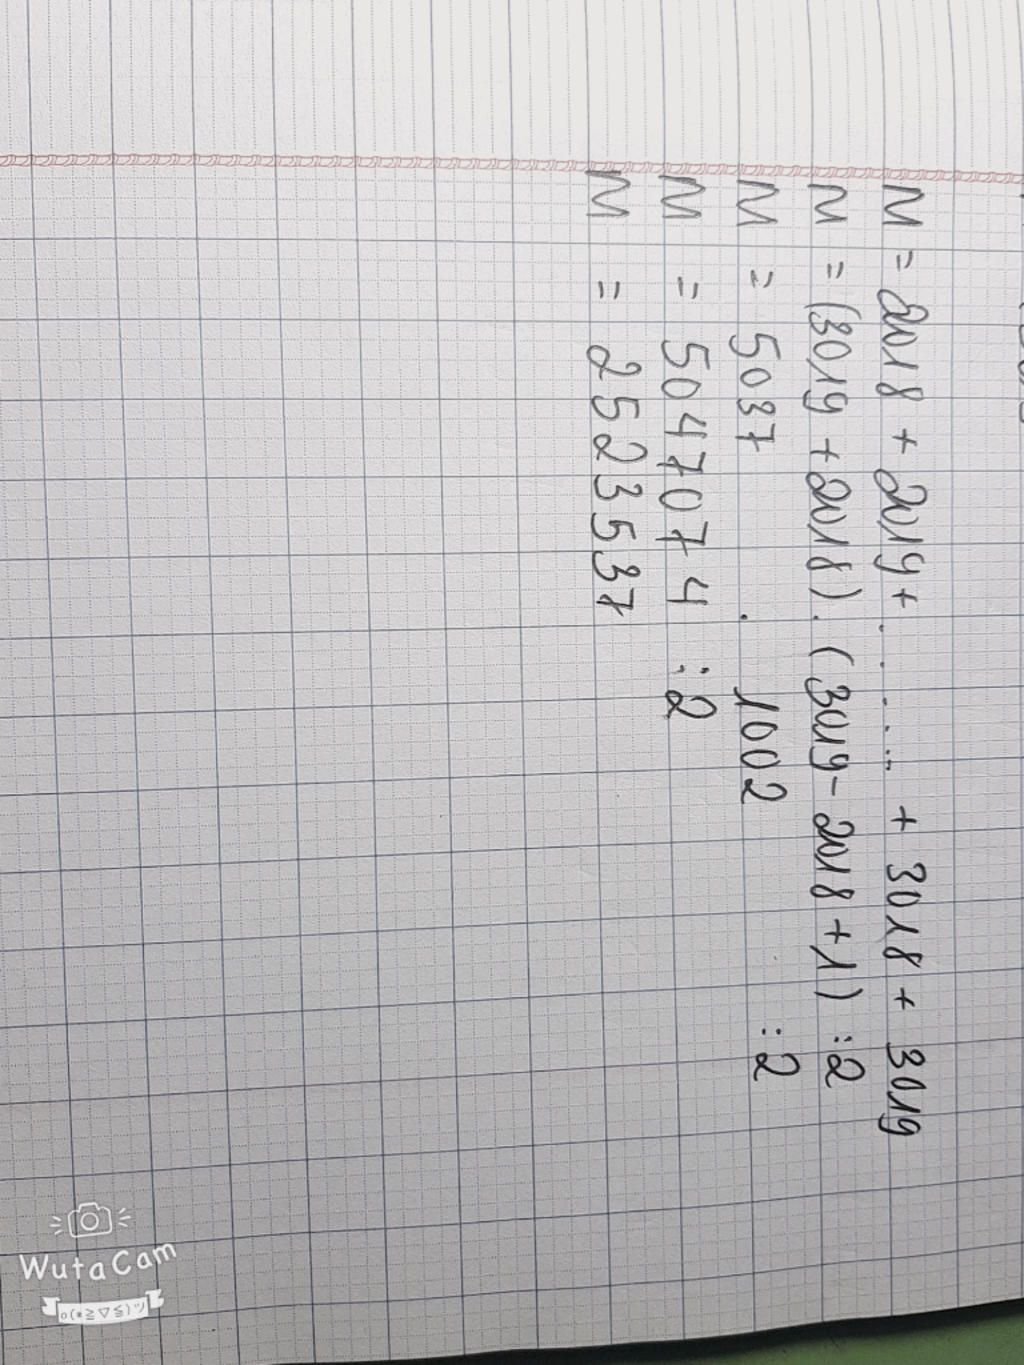 M = 2018 + 2019 + ....... + 3018 + 3019
M = (3019 + 2018) . (3019 - 2018 + 1) : 2
M = 5037 . 1002 : 2
M = 5047074 : 2
M = 2523537
WutaCam
o(*≧▽≦)ツ